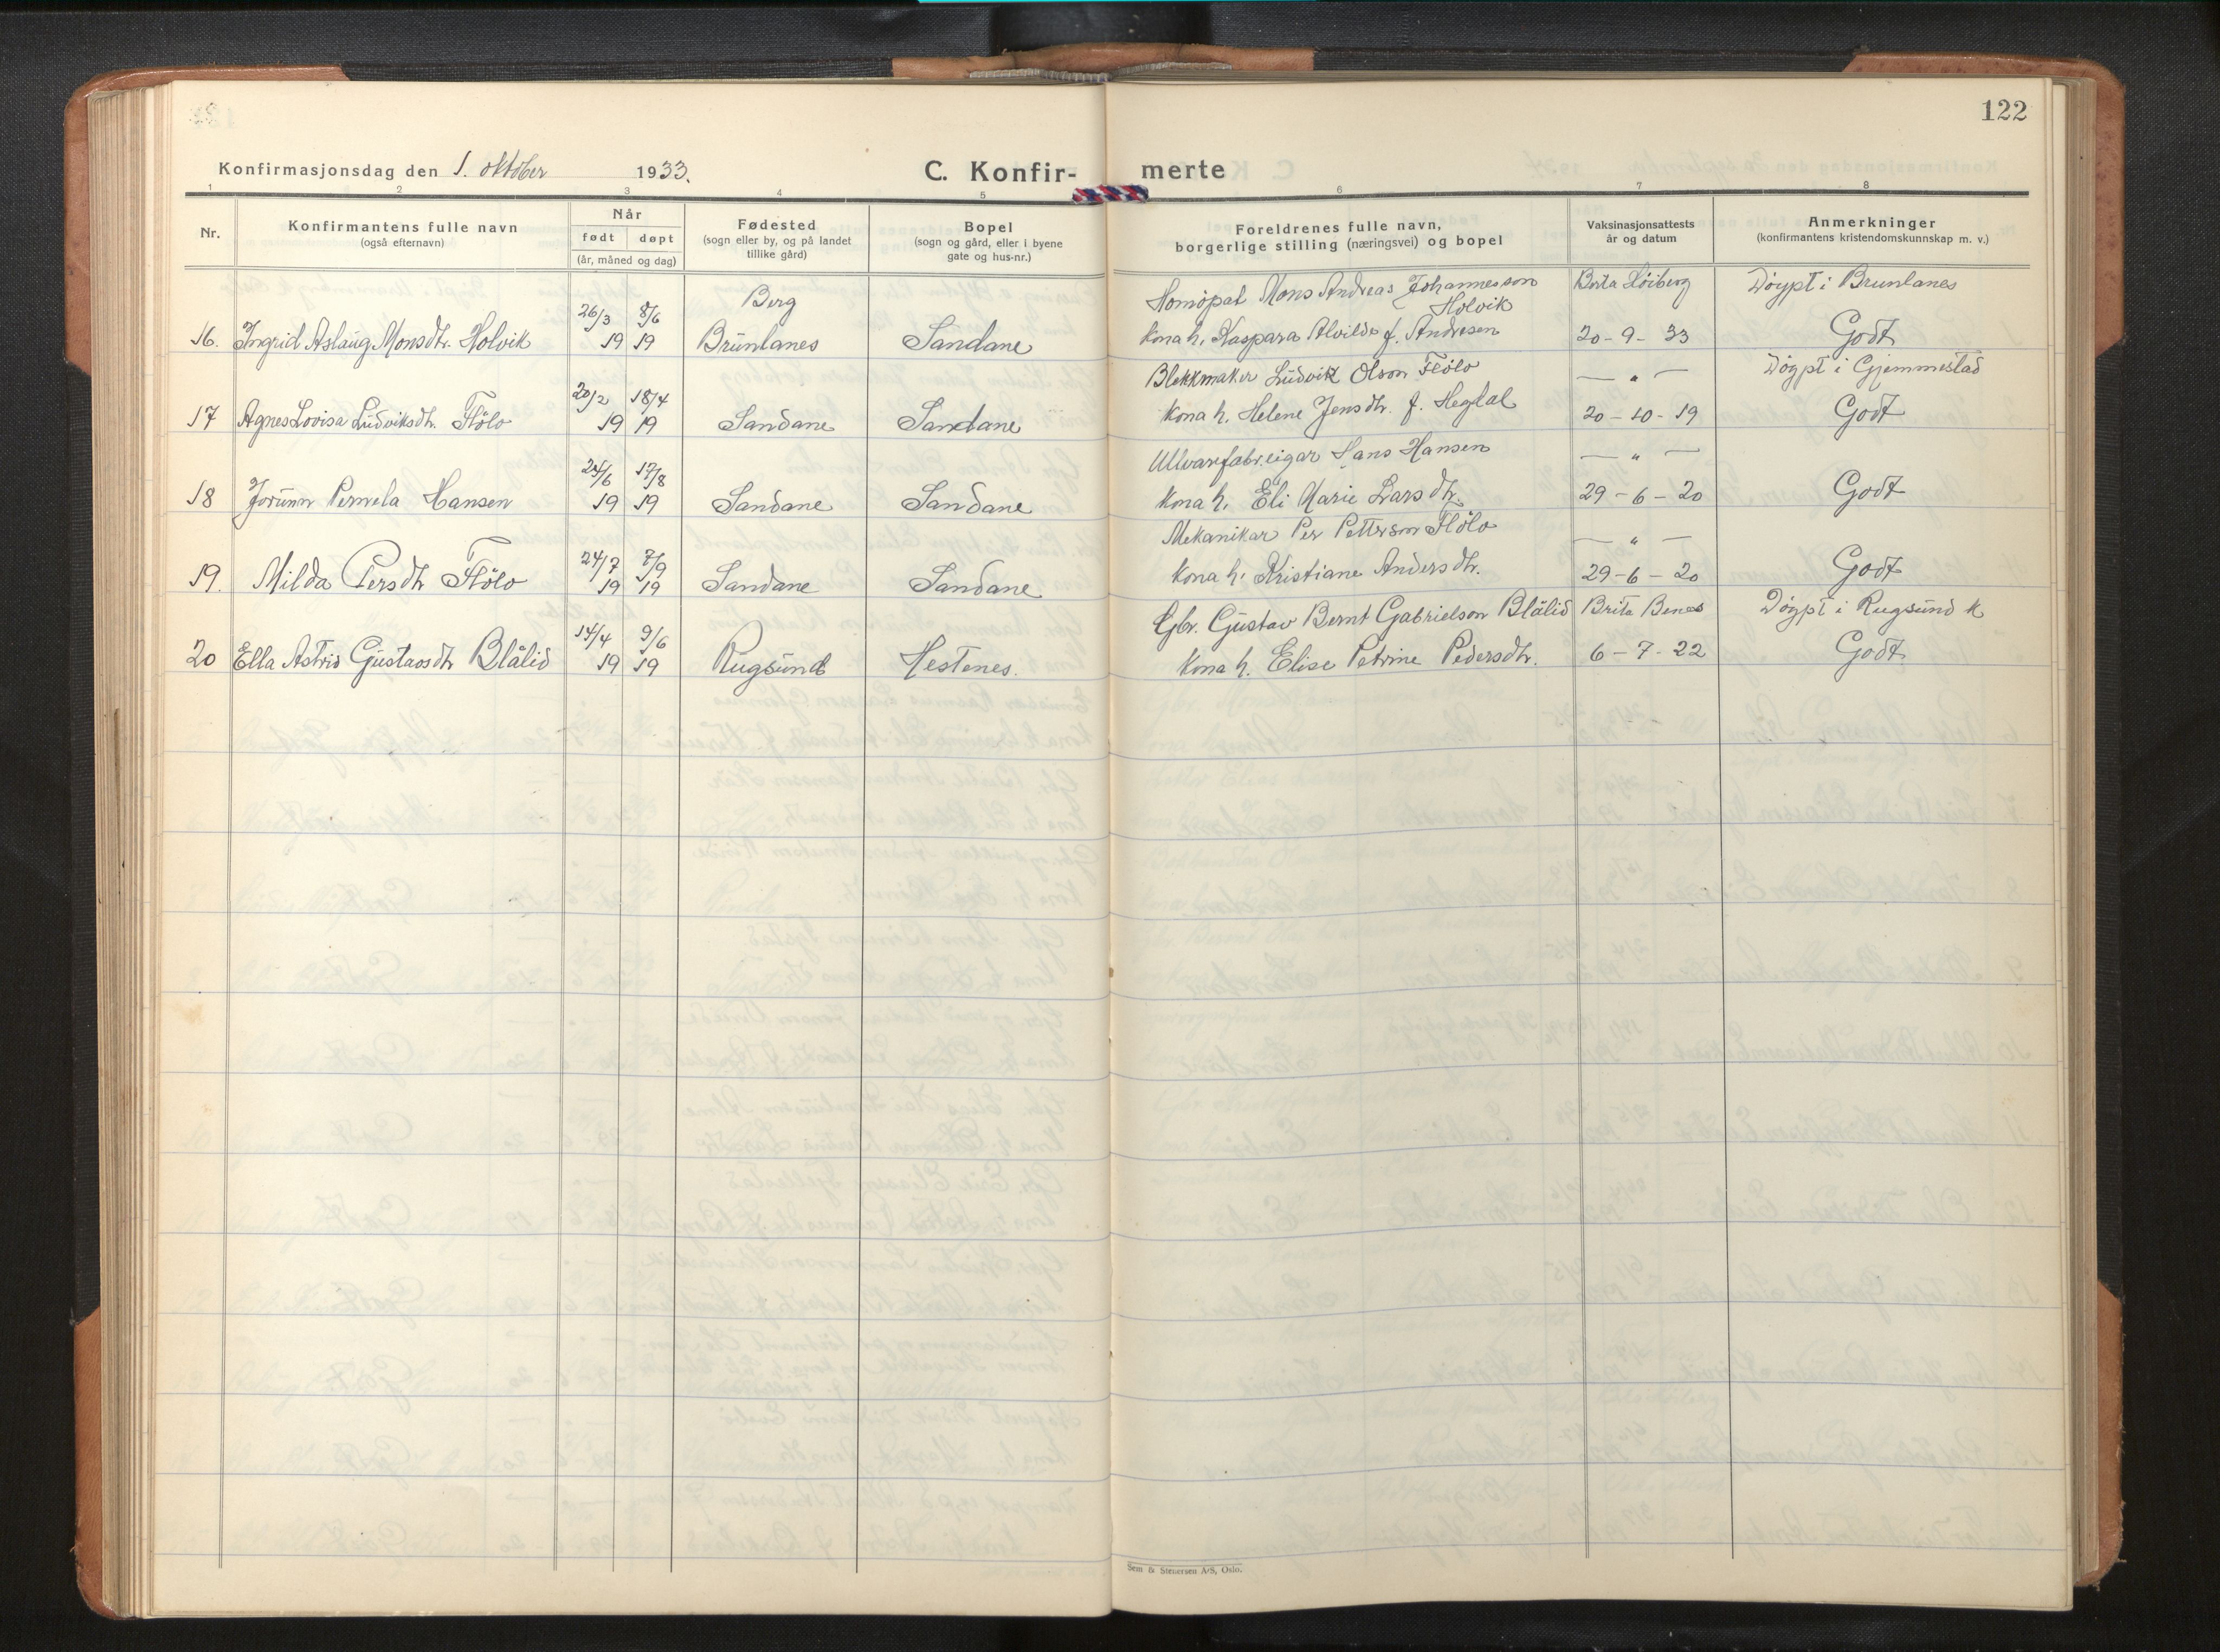 122
Konfirmasjonsdag den 1. oktober 1933. C. Konfir- merte
1 2 3 4 5 6 7 8
Nr.
Konfirmantens fulle navn
(også efternavn)
Når
født døpt
(år, måned og dag)
Fødested
(sogn eller by, og på landet
tillike gård)
Bopel
(sogn og gård, eller i byene
gate og hus-nr.)
Foreldrenes fulle navn,
borgerlige stilling (næringsvei) og bopel
Vaksinasjonsattests
år og datum
Anmerkninger
(konfirmantens kristendomskunnskap m. v.)
26/3 8/6 Berg Homöpat Mons Andreas Johannesson Holvik Berta Höiberg Döypt i Brunlanes
16. Ingrid Aslaug Monsdtr. Holvik 19 19 Brunlanes Sandane kona h. Kaspara Alvilde f. Andresen 20-9-33 Godt
20/2 18/4 Blekkmaker Ludvik Olson Flölo — " — Döypt i Gjemmestad
17 Agnes Lovisa Ludviksdtr. Flölo 19 19 Sandane Sandane kona h. Helene Jensdtr. f. Hegdal 20-10-19 Godt
24/6 17/8 Ullvarefabr.eigar Hans Hansen — " —
18 Jorunn Pernela Hansen 19 19 Sandane Sandane kona h. Eli Marie Larsdtr. 29-6-20 Godt
24/7 7/9 Mekanikar Per Petterson Flölo — " —
19. Milda Persdtr Flölo 19 19 Sandane Sandane kona h. Kristiane Andersdtr. 29-6-20 Godt
14/4 9/6 Gbr. Gustav Bernt Gabrielson Blålid Brita Benes Döypt i Rugsund k
20 Ella Astrid Gustavsdtr Blålid 19 19 Rugsund Hestenes. kona h. Elise Petrine Pedersdtr. 6-7-22 Godt
Sem & Stenersen A/S, Oslo.